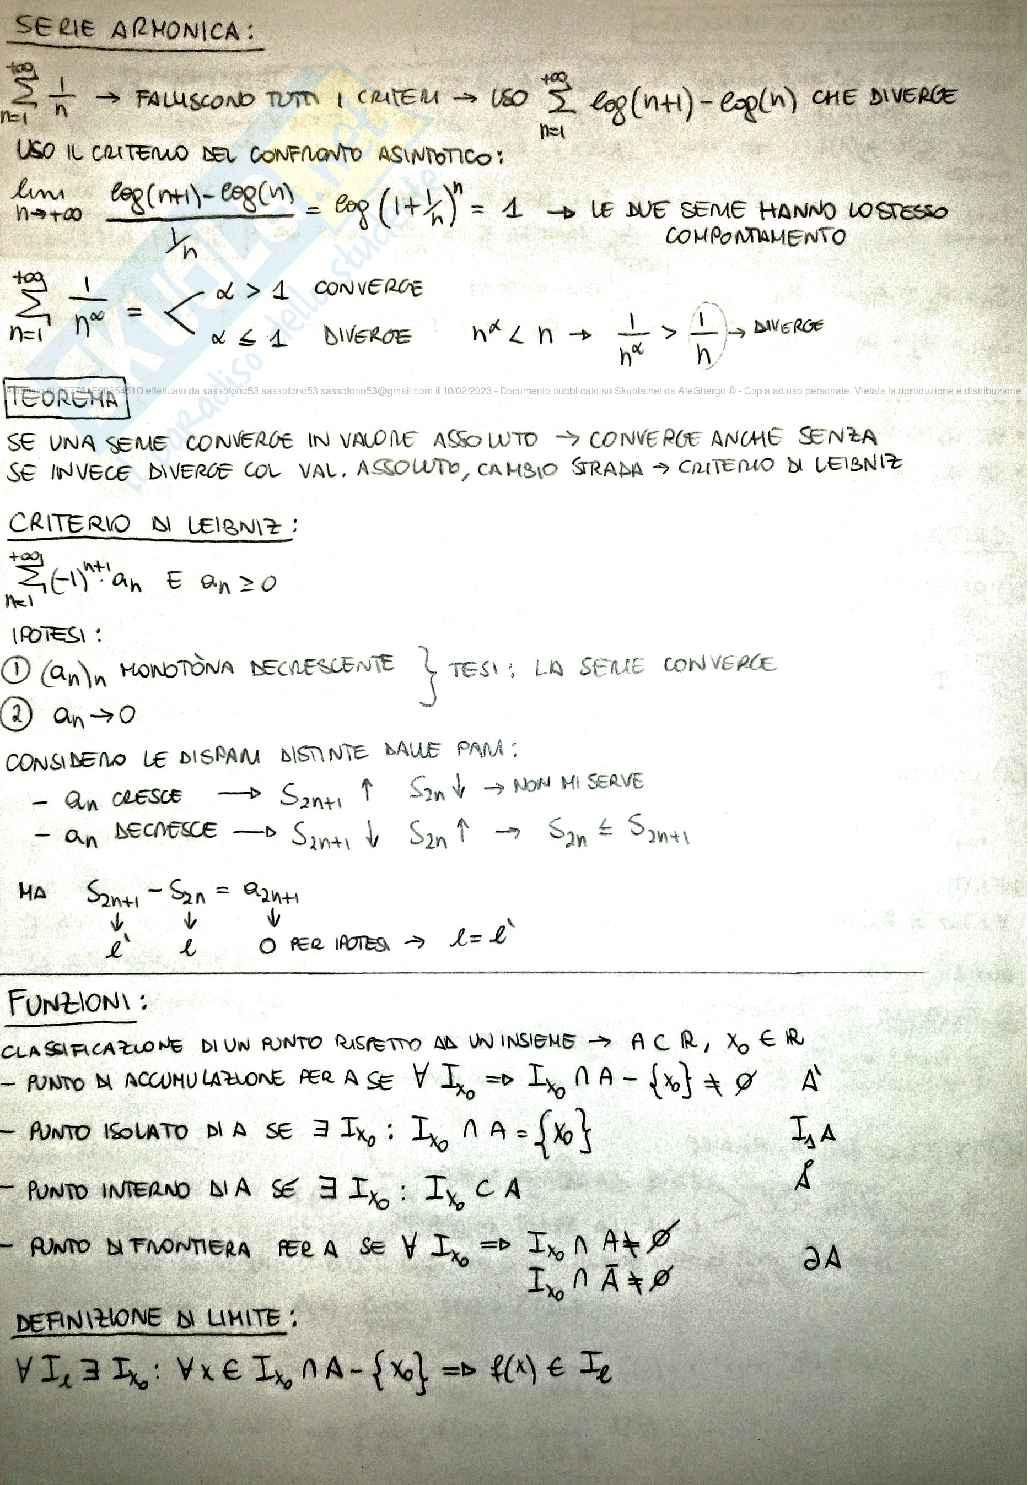 SERIE ARMONICA:
+∞ Σ n=1 1/n → FALLISCONO TUTTI I CRITERI → USO +∞ Σ n=1 log(n+1) - log(n) CHE DIVERGE
USO IL CRITERIO DEL CONFRONTO ASINTOTICO:
lim n→+∞ (log(n+1) - log(n)) / (1/n) = log (1+1/n)^n = 1 → LE DUE SERIE HANNO LO STESSO
COMPORTAMENTO
+∞ Σ n=1 1/n^α = < α > 1 CONVERGE
α ≤ 1 DIVERGE n^α < n → 1/n^α > 1/n → DIVERGE
effettuati da sassofono53 sassofono53 sassofono53@gmail.com il 10/02/2023 - Documento pubblicato su Skuola.net da AleGhergo © - Copia ad uso personale. Vietata la riproduzione e distribuzione
TEOREMA
SE UNA SERIE CONVERGE IN VALORE ASSOLUTO → CONVERGE ANCHE SENZA
SE INVECE DIVERGE COL VAL. ASSOLUTO, CAMBIO STRADA → CRITERIO DI LEIBNIZ
CRITERIO DI LEIBNIZ:
+∞ Σ n=1 (-1)^n+1 · an E an ≥ 0
IPOTESI:
① (an)n MONOTÒNA DECRESCENTE } TESI: LA SERIE CONVERGE
② an → 0
CONSIDERO LE DISPARI DISTINTE DALLE PARI:
- an CRESCE → S2n+1 ↑ S2n ↓ → NON MI SERVE
- an DECRESCE → S2n+1 ↓ S2n ↑ → S2n ≤ S2n+1
MA S2n+1 - S2n = a2n+1
↓ ↓ ↓
l' l 0 PER IPOTESI → l = l'
FUNZIONI:
CLASSIFICAZIONE DI UN PUNTO RISPETTO AD UN INSIEME → A ⊂ R, x0 ∈ R
- PUNTO DI ACCUMULAZIONE PER A SE ∀ Ix0 ⇒ Ix0 ∩ A - {x0} ≠ ∅ A'
- PUNTO ISOLATO DI A SE ∃ Ix0 : Ix0 ∩ A = {x0} IsA
- PUNTO INTERNO DI A SE ∃ Ix0 : Ix0 ⊂ A Å
- PUNTO DI FRONTIERA PER A SE ∀ Ix0 ⇒ Ix0 ∩ A ≠ ∅
Ix0 ∩ Ā ≠ ∅ ∂A
DEFINIZIONE DI LIMITE:
∀ Il ∃ Ix0 : ∀x ∈ Ix0 ∩ A - {x0} ⇒ f(x) ∈ Il